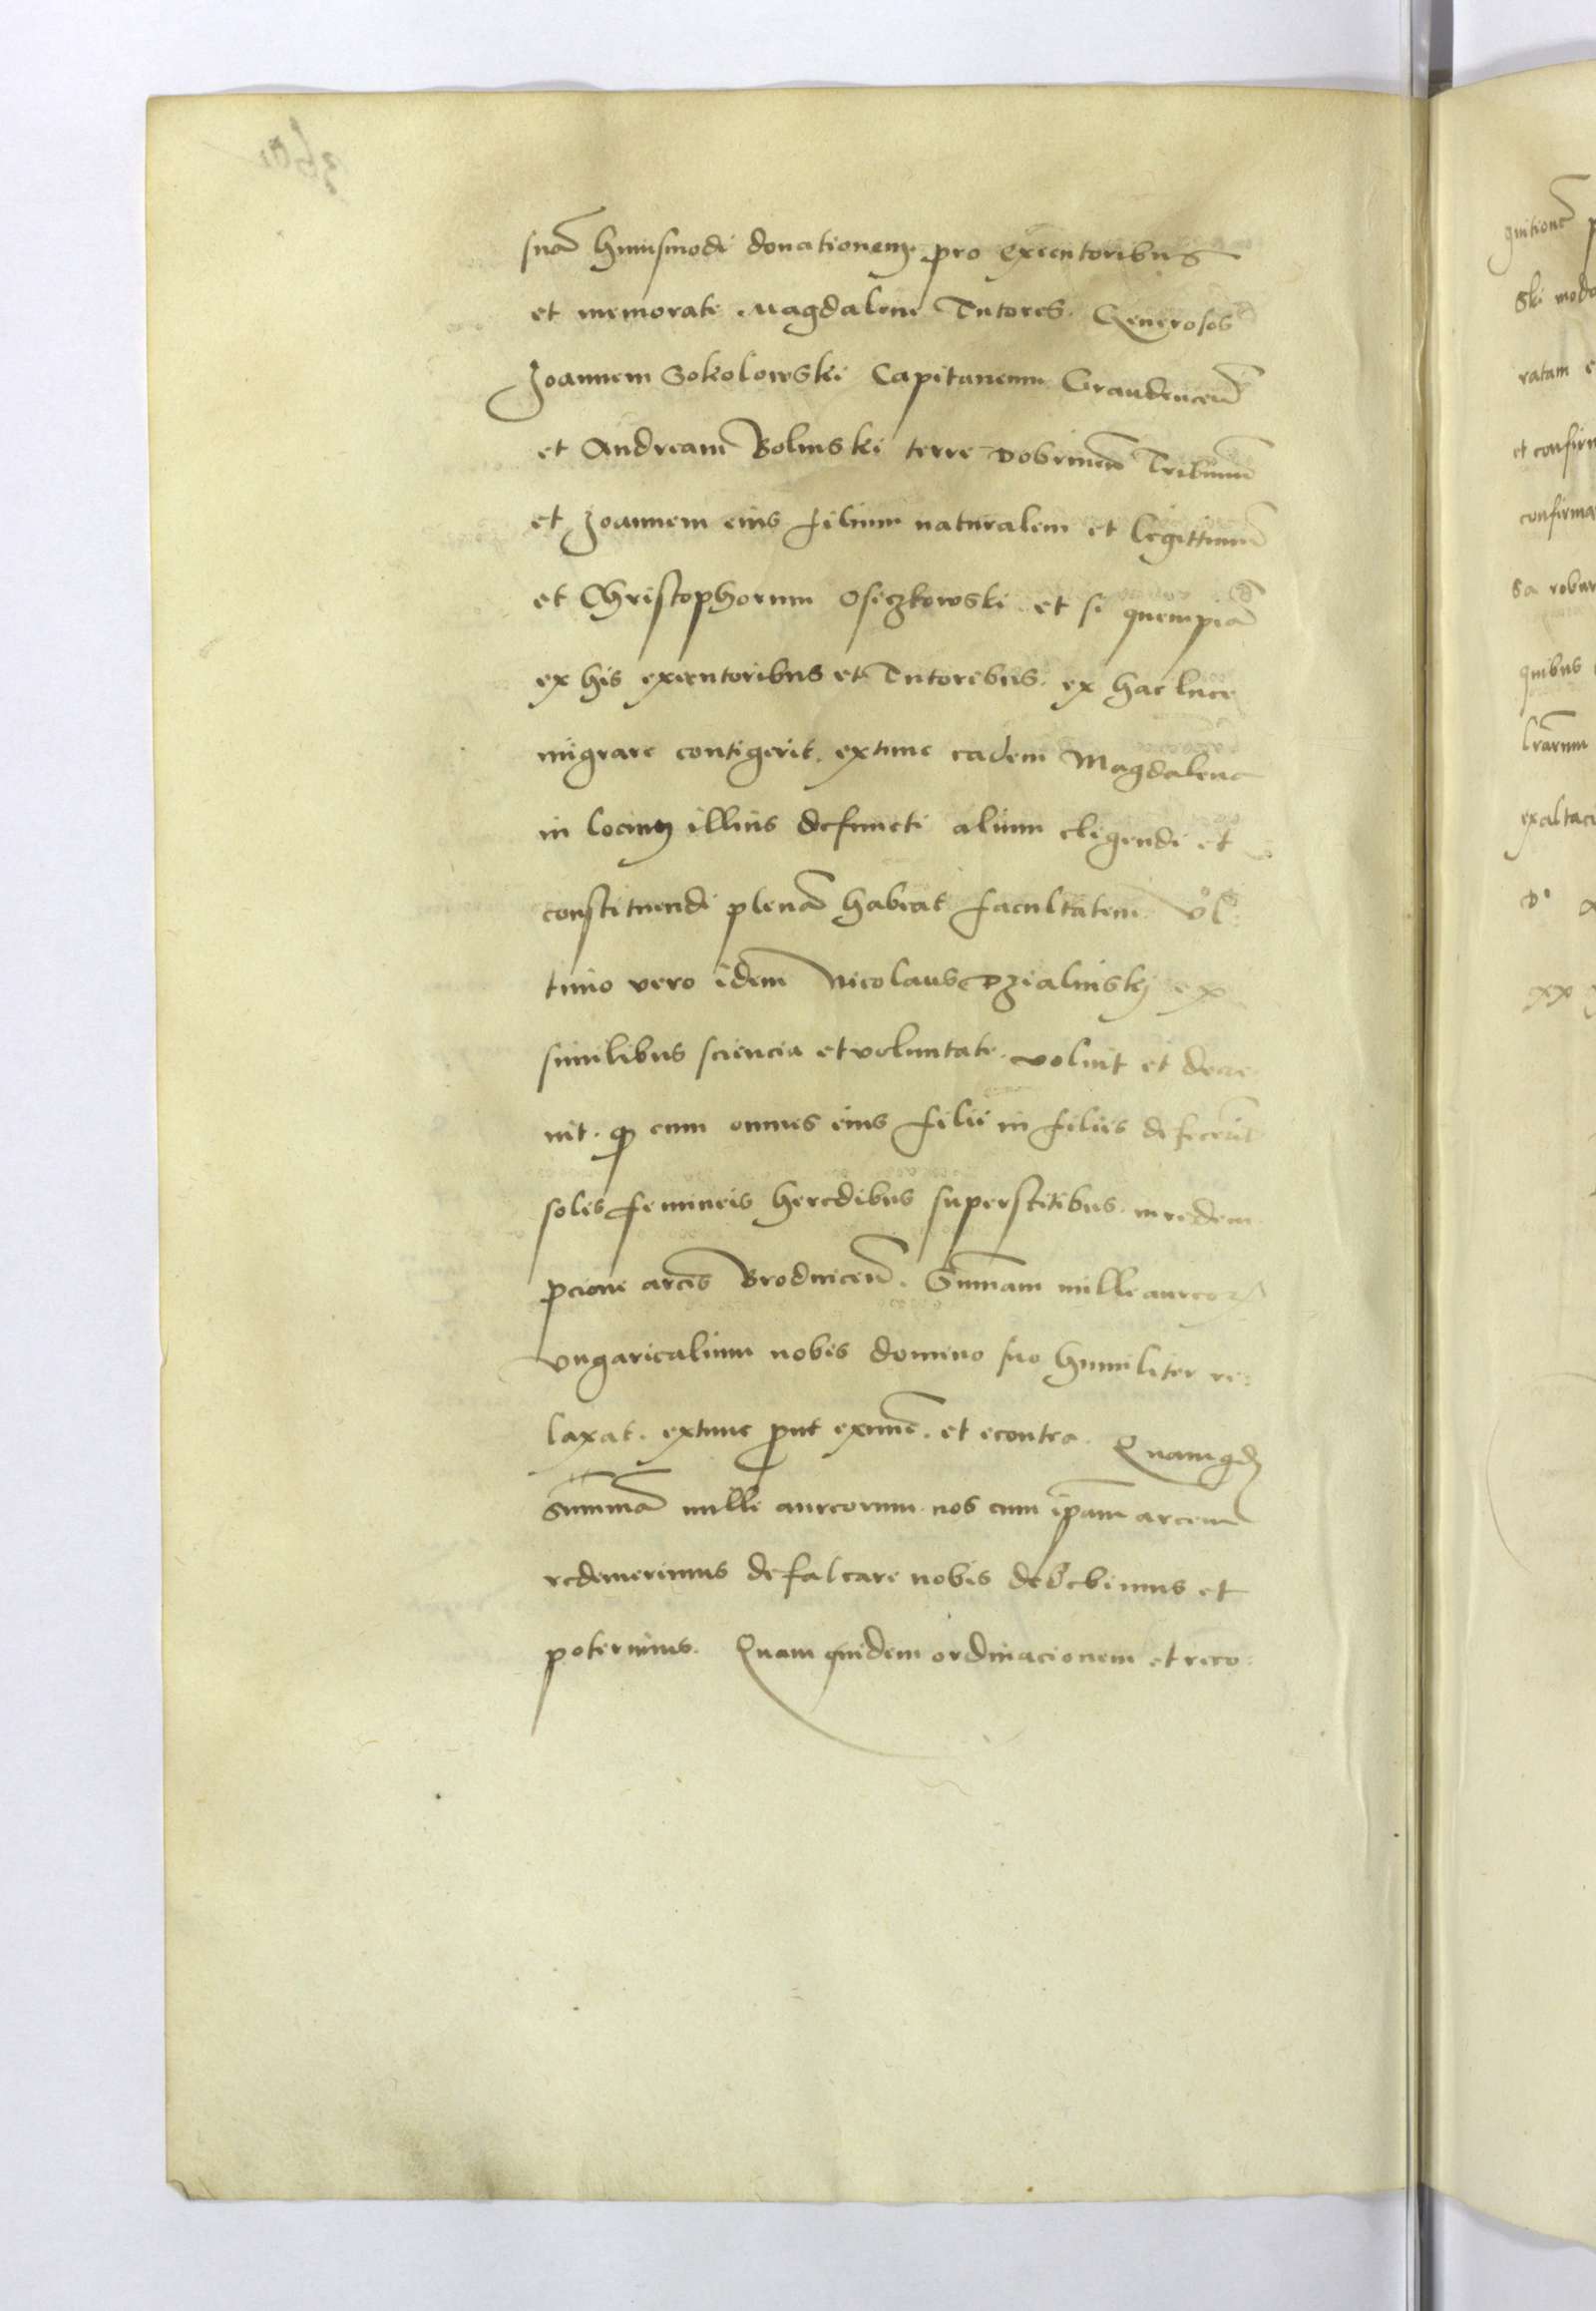 suā huiusmodi donationem pro executoribus
et memorate Magdalene Tutores Generosos
Joannem Sokolowski Capitaneum Graudenceñ
et Andream Bolinski terre Dobrineñ Tribunū
et Joannem eius filium naturalem et legittimū
et Christophorum Osiczkowski et si quempiā
ex his executoribus et Tutoribus ex hac luce
migrare contigerit, extunc eadem Magdalena
in locum illius defuncti alium eligendi et
constituendi plenā habeat facultatem Vl
timo vero idem Nicolaus Dzialinskj ex
similibus sciencia et voluntate voluit et decre
uit. q cum omnes eius filii in filiis defecerint
solis femineis heredibus superstitibus in redem
pcione arcis Brodniceñ. Summam mille aureoꝝ
Vngaricalium nobis domino suo humiliter re:
laxat. extunc prout exnunc. et econtra. Quam qd
Summā mille aureorum nos cum ipam arcem
redemerimus defalcare nobis debebimus et
poterimus. Quam quidem ordinacionem et reco:
gnitionē
ski modo
ratam
et confirm
confirma
sa robur
quibus
lrarum
exaltaci
xx